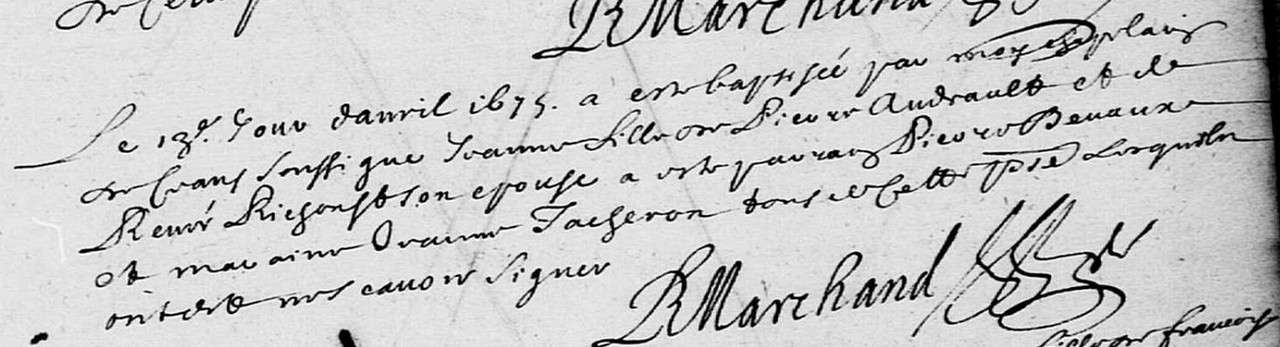 R Marchand
Le 13e Jour davril 1675. a este baptisée par moy
de ceans soussigne Jeanne fille de Pierre Audrault et de
Renée Richonst son epouse a este parrain Pierre
et maraine Jeanne Tacheron tous de cette psse Lesquels
ont dit ne scavoir signer
R Marchand
fille de francois